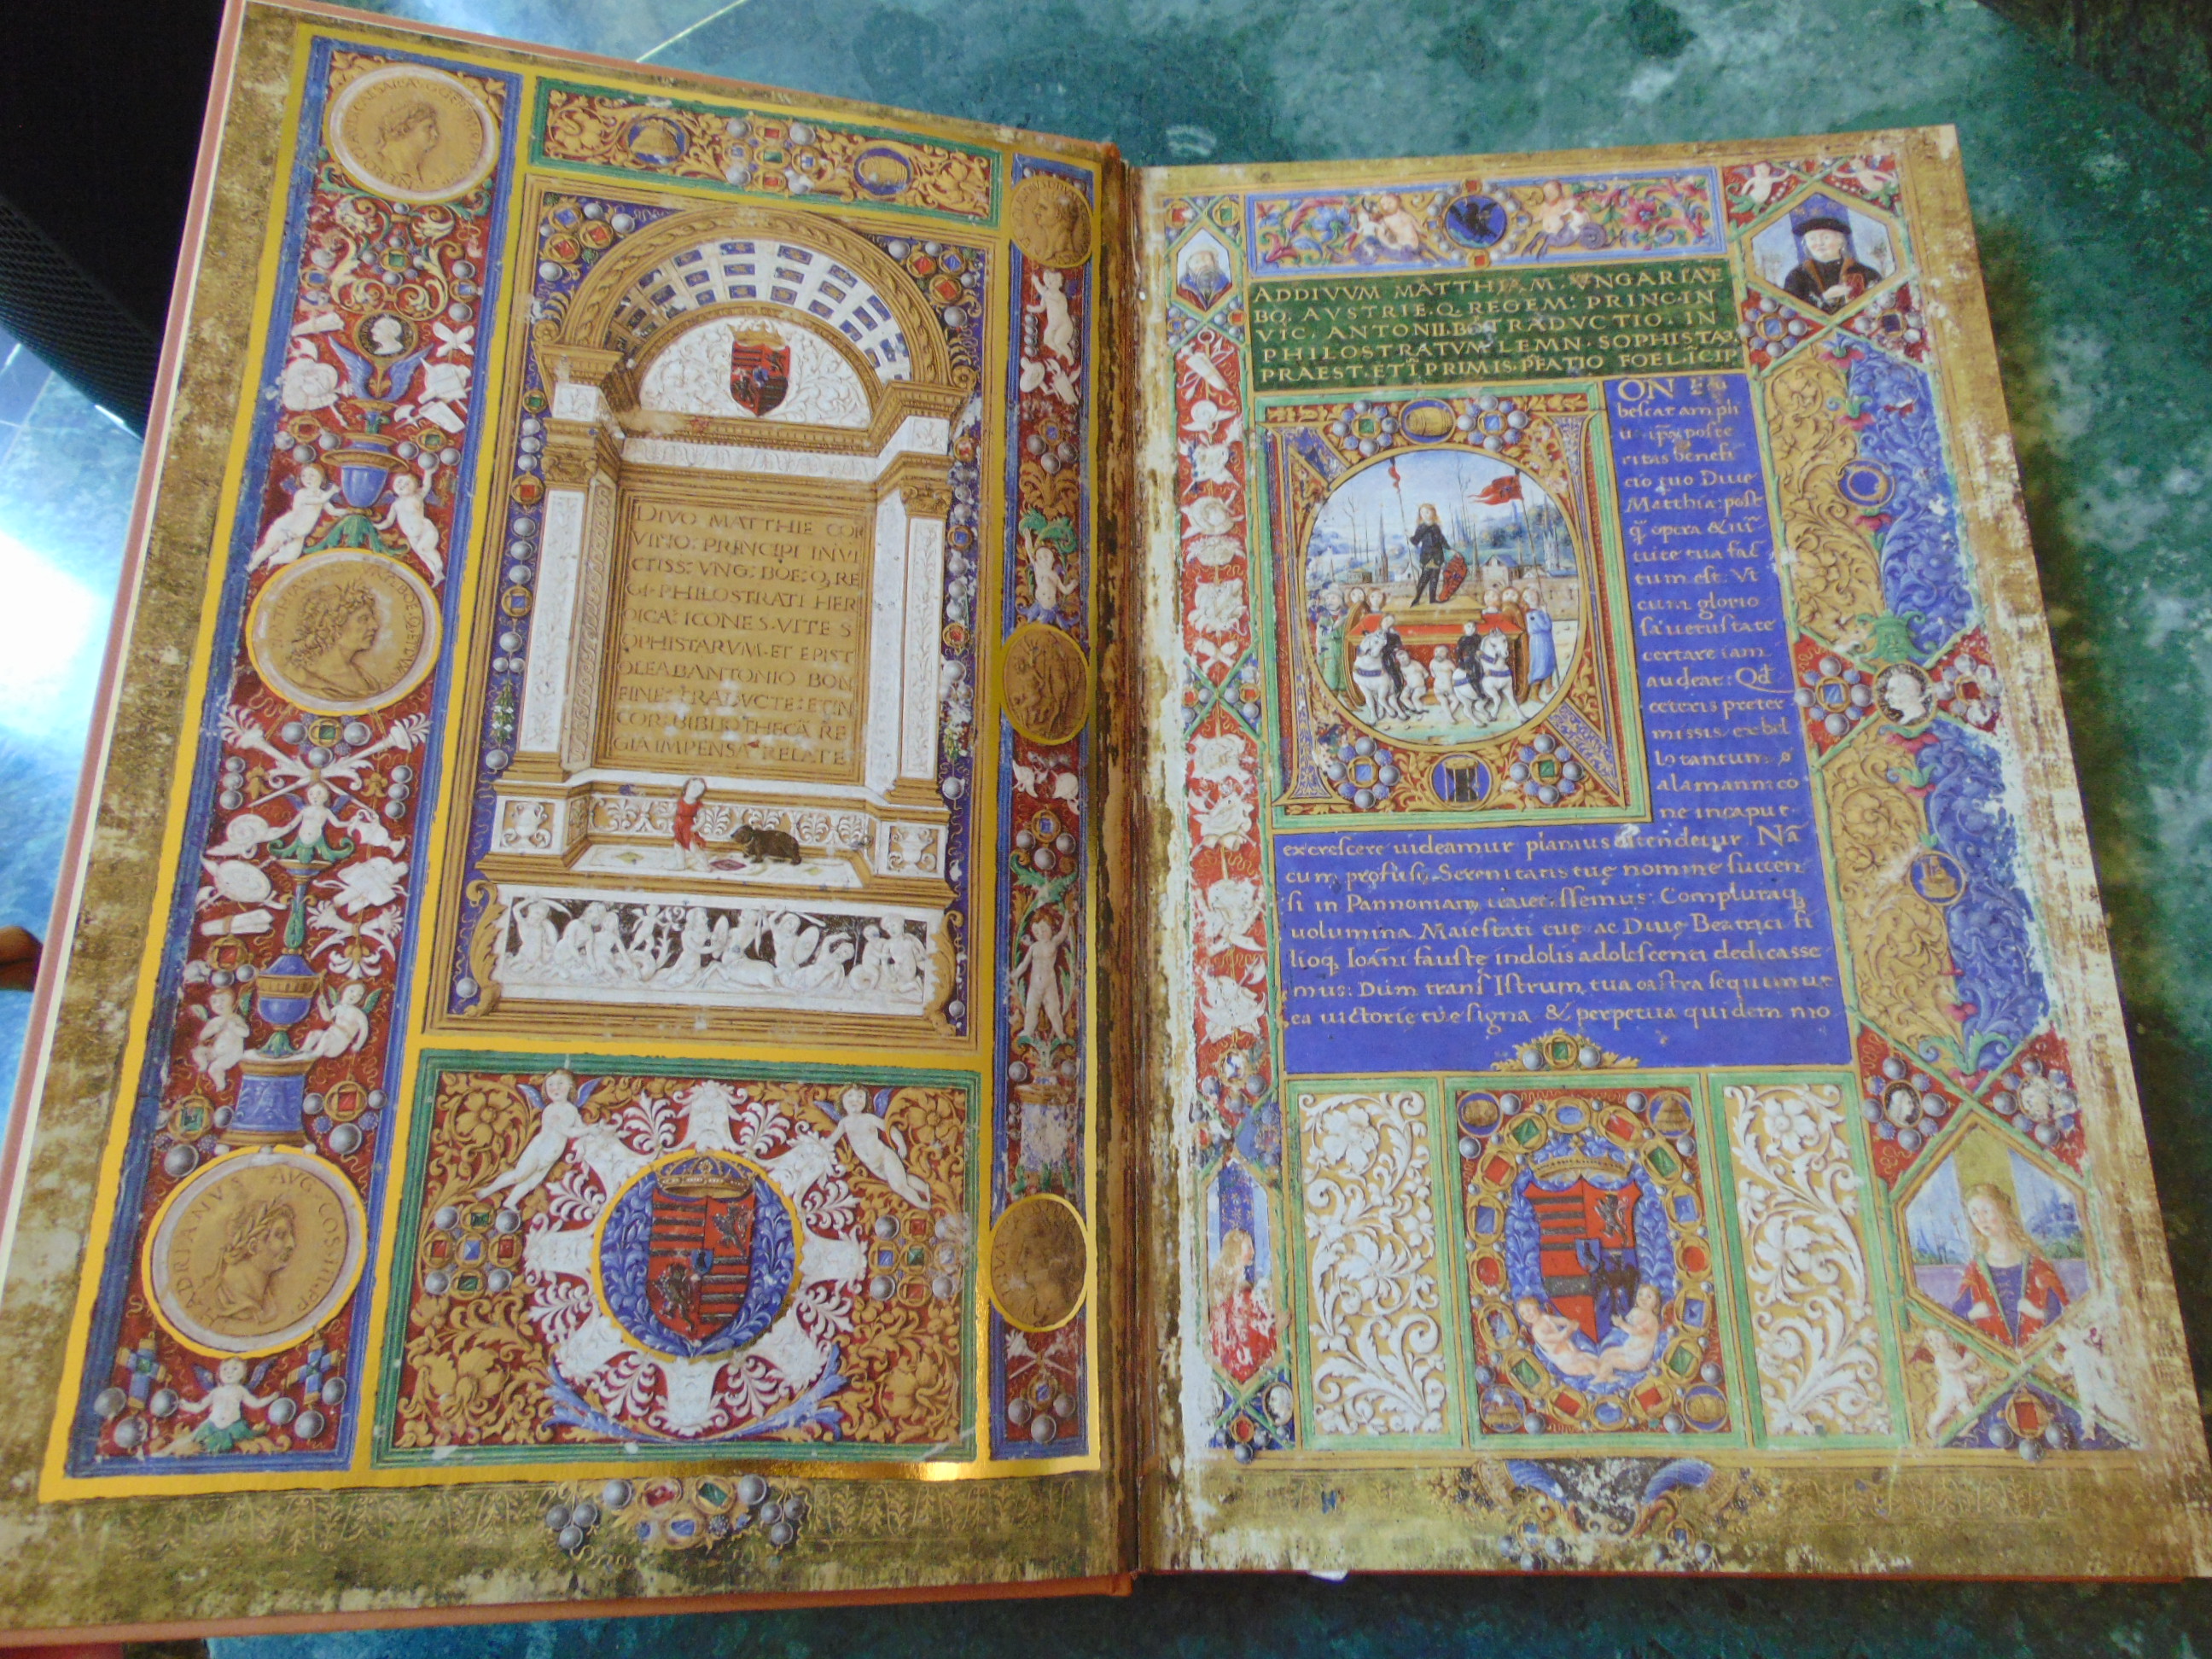 DIVO MATTHIE COR
VINO: PRINCIPI INVI
CTISS: VNG: BOE: Q, RE
GI: PHILOSTRATI HER
OICA: ICONES. VITE S
OPHISTARVM. ET EPIST
OLE AB ANTONIO BON
FINE: TRADVCTE: ET IN
COR: BIBLIOTHECĀ RE
GIA IMPENSA RELATE
HADRIANVS AVG COS III PP
AD DIVVM MATTHIAM. VNGARIAE
BO. AVSTRIE. Q. REGEM: PRINC. IN
VIC. ANTONII. BO. TRADVCTIO. IN
PHILOSTRATVM. LEMN. SOPHISTAȜ
PRAEST. ET Ī PRIMIS. P̄FATIO FOEL. ĪCIP
ON
bescat am phi
poste
ritas benefi
cio quo Diue
Matthia: post
q̄ opera & uir
tute tua fac
tum est: Vt
cum glorio
sa uetustate
certare iam
audeat: Qd
ceteris preter
missis ex bel
lo tantum
alamanni co
ne in caput
excrescere uideamur planius ostendetur. Nā
cum profusi Serenitatis tuę nomine succen
si in Pannoniam Compluraq
uolumina Maiestati tuę ac Diuę Beatrici fi
lioq, Ioāni faustę indolis adolescenti dedicasse
mus: Dum trans Istrum tua castra sequimur
ea uictorie tue signa & perpetua quidem mo